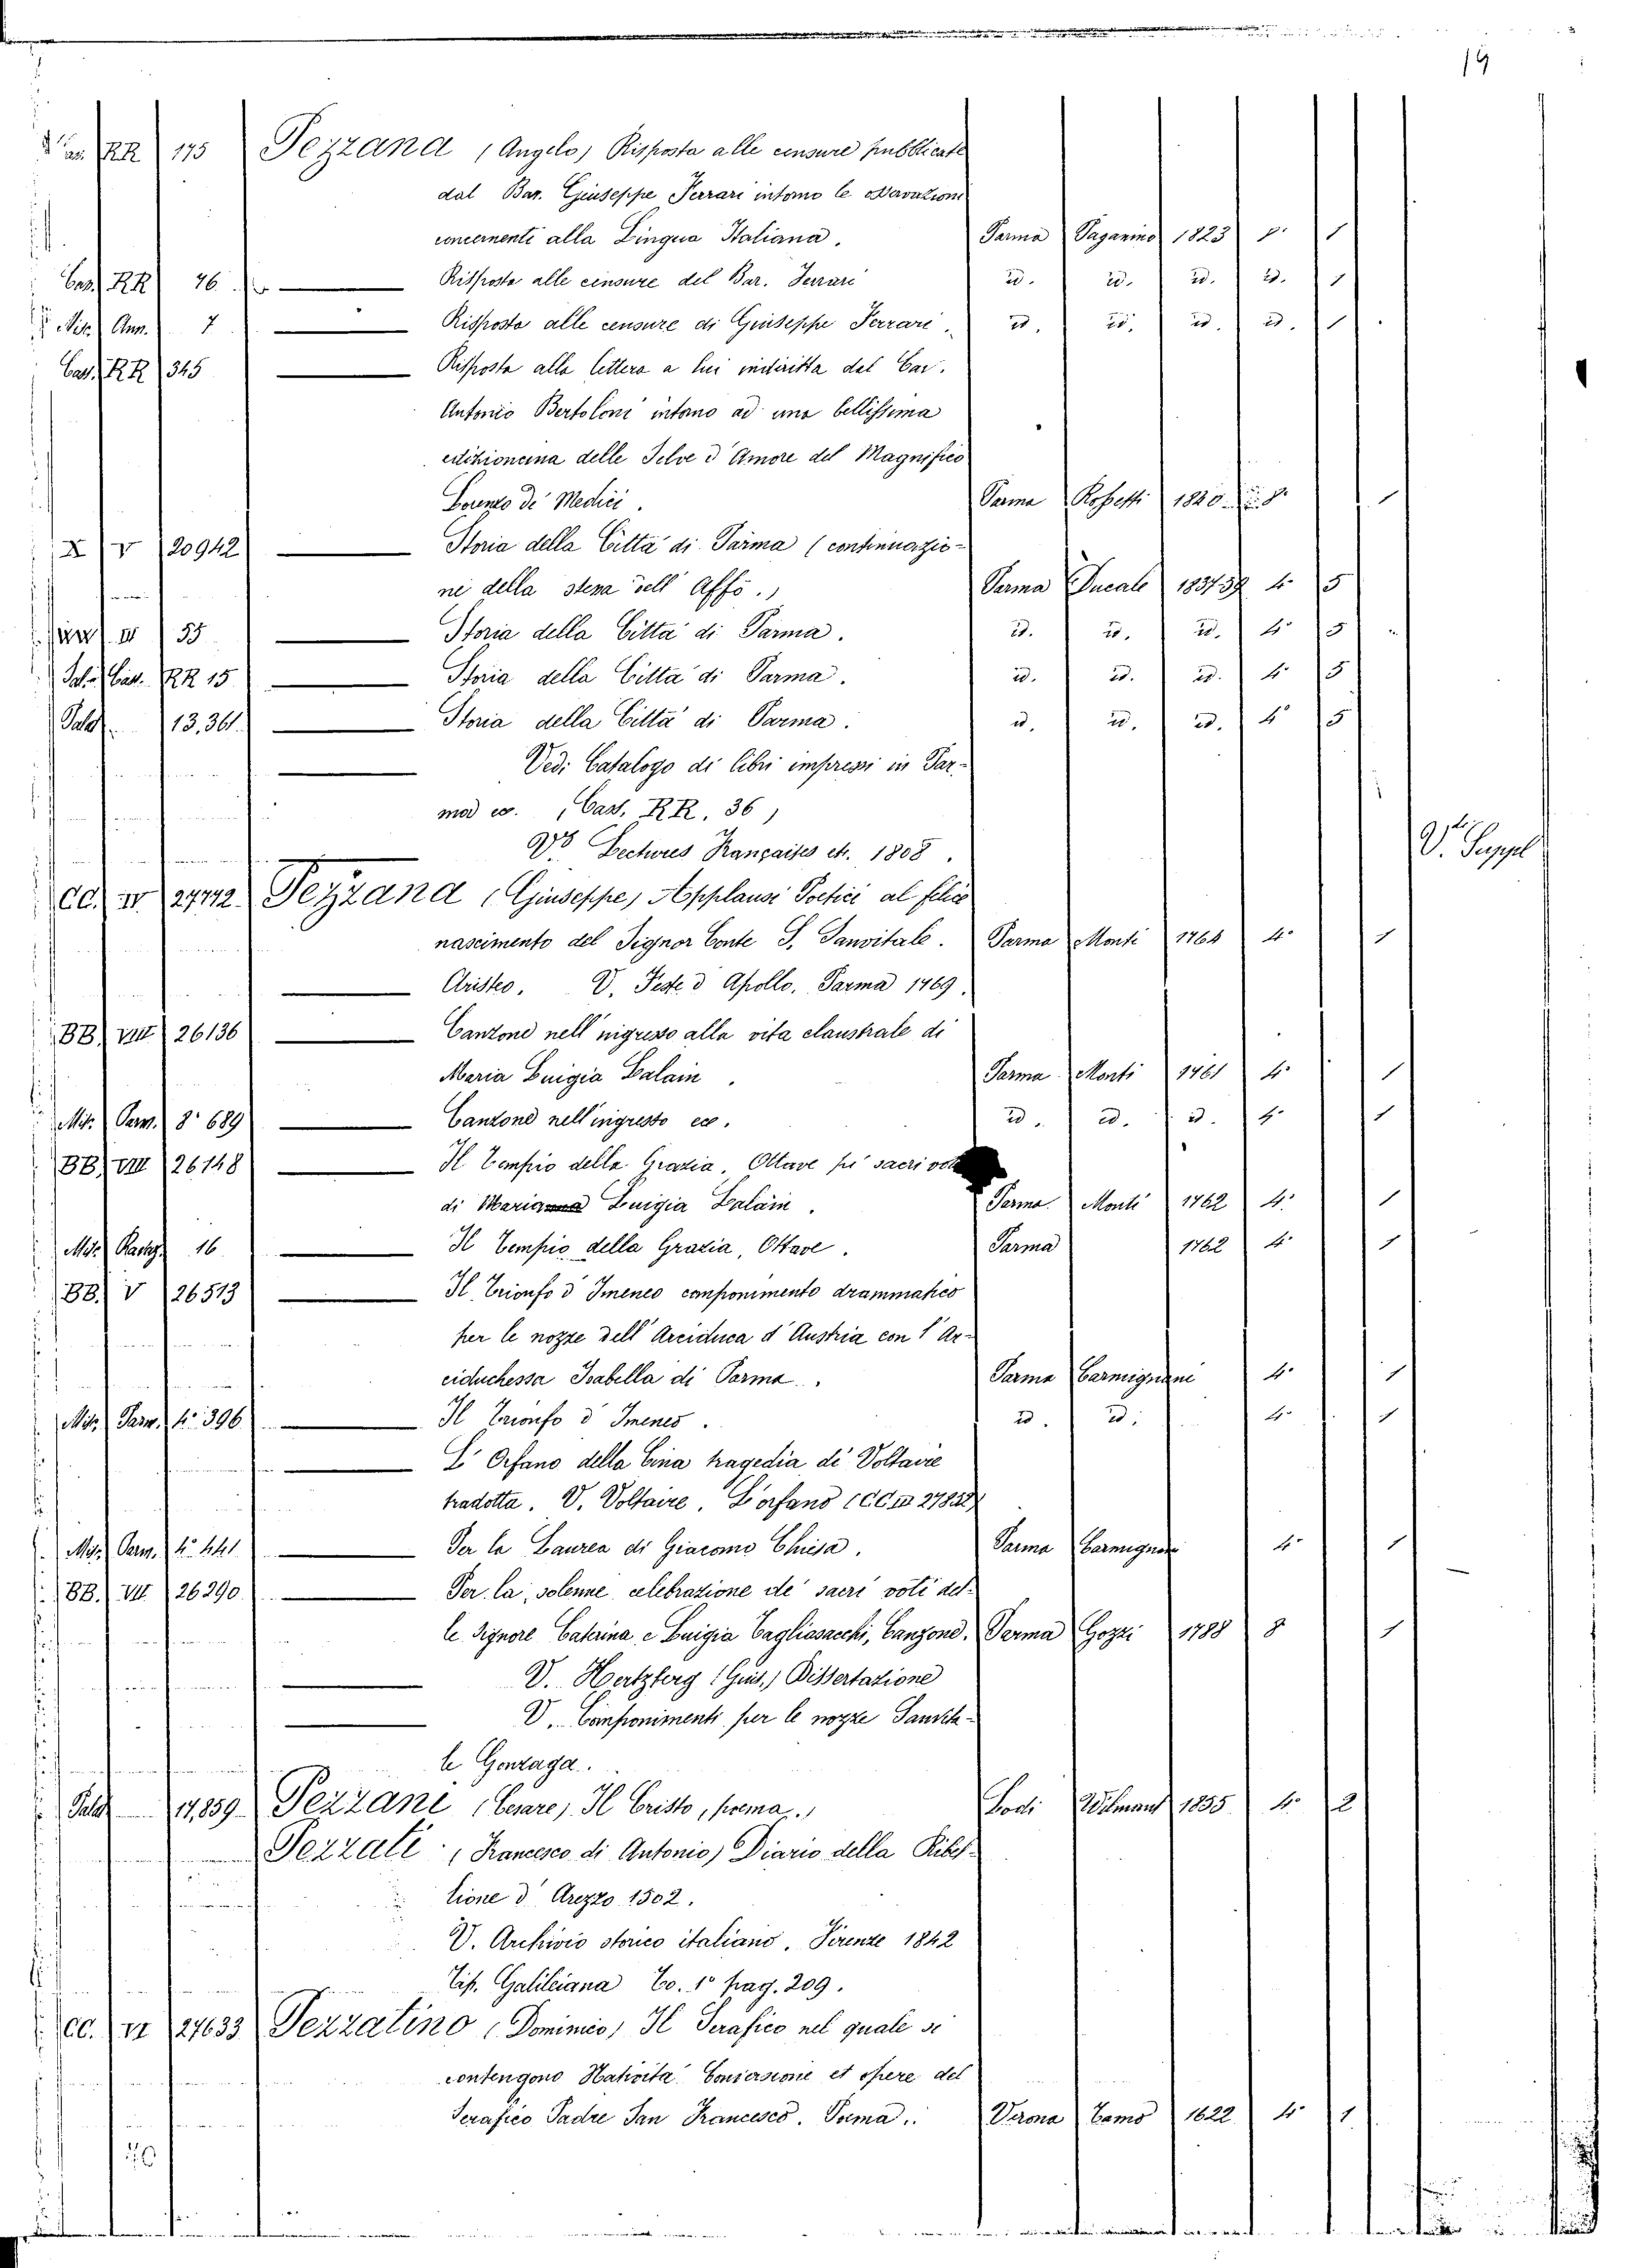 19
RR 175 Pezzana (Angelo) Risposta alle censure pubblicate
dal Bar. Giuseppe Ferrari intorno le Osservazioni
concernenti alla Lingua Italiana. Parma Paganino 1823 8° 1
Cass. RR 76 Risposta alle censure del Bar. Ferrari id. id. id. id. 1
Misc. Ann. 7 Risposta alle censure di Giuseppe Ferrari. id. id. id. id. 1
Cass. RR 345 Risposta alla lettera a lui indiritta dal Cav.
Antonio Bertoloni intorno ad una bellissima
edizioncina delle Selve d'Amore del Magnifico
Lorenzo de' Medici. Parma Rossetti 1820 8° 1
X V 20942 Storia della Città di Parma (continuazio-
ne della stessa dell'Affò.) Parma Ducale 1837-59 4° 5
III 55 Storia della Città di Parma. id. id. id. 4° 5
Cass. RR 15 Storia della Città di Parma. id. id. id. 4° 5
Palat. 13,361 Storia della Città di Parma. id. id. id. 4° 5
Vedi Catalogo di libri impressi in Par-
ma ec. (Cass. RR. 36)
V. Lectures Françaises etc. 1808.
V. Suppl
CC. IV 27772 Pezzana (Giuseppe) Applausi Poetici al felice
nascimento del Signor Conte S. Sanvitale. Parma Monti 1764 4° 1
Aristeo. V. Feste d'Apollo. Parma 1769.
BB. VIII 26136 Canzone nell'ingresso alla vita claustrale di
Maria Luigia Balain. Parma Monti 1761 4° 1
Misc. Parm. 8° 689 Canzone nell'ingresso ec. id. id. id. 4° 1
BB. VIII 26148 Il Tempio della Grazia, Ottave pei sacri voti
di Maria Luigia Balain. Parma Monti 1762 4° 1
Misc. 16 Il Tempio della Grazia, Ottave. Parma 1762 4° 1
BB. V 26513 Il Trionfo d'Imeneo componimento drammatico
per le nozze dell'Arciduca d'Austria con l'Ar-
ciduchessa Isabella di Parma. Parma Carmignani 4° 1
Misc. Parm. 4° 396 Il Trionfo d'Imeneo. id. id. 4° 1
L'Orfano della Cina tragedia di Voltaire
tradotta. V. Voltaire, L'orfano (CC.
Misc. Parm. 4° 441 Per la Laurea di Giacomo Chiesa. Parma Carmignani 4° 1
BB. VII 26290 Per la solenne celebrazione de' sacri voti del-
le Signore Caterina e Luigia Cagliasacchi, Canzone. Parma Gozzi 1788 8° 1
V. Hertzberg (Gius.) Dissertazione
V. Componimenti per le nozze Sanvita-
le Gonzaga.
Palat. 14,859 Pezzani (Cesare) Il Cristo, poema. Lodi Wilmant 1855 4° 2
Pezzati (Francesco di Antonio) Diario della Ribel-
lione d'Arezzo 1502.
V. Archivio storico italiano. Firenze 1842
Tip. Galileiana To. 1° pag. 209.
CC. VI 27633 Pezzatino (Dominico) Il Serafico nel quale si
contengono Natività Conversione et opere del
Serafico Padre San Francesco. Poema. Verona Tamo 1622 4° 1